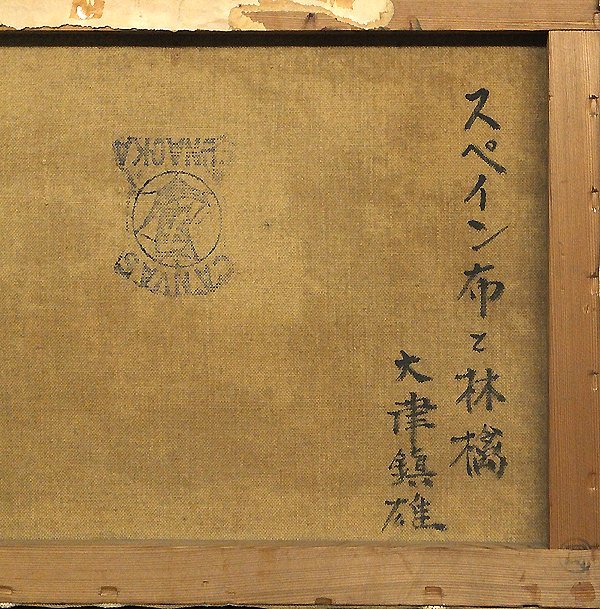 スペイン布と林檎
大津鎮雄
CANVAS